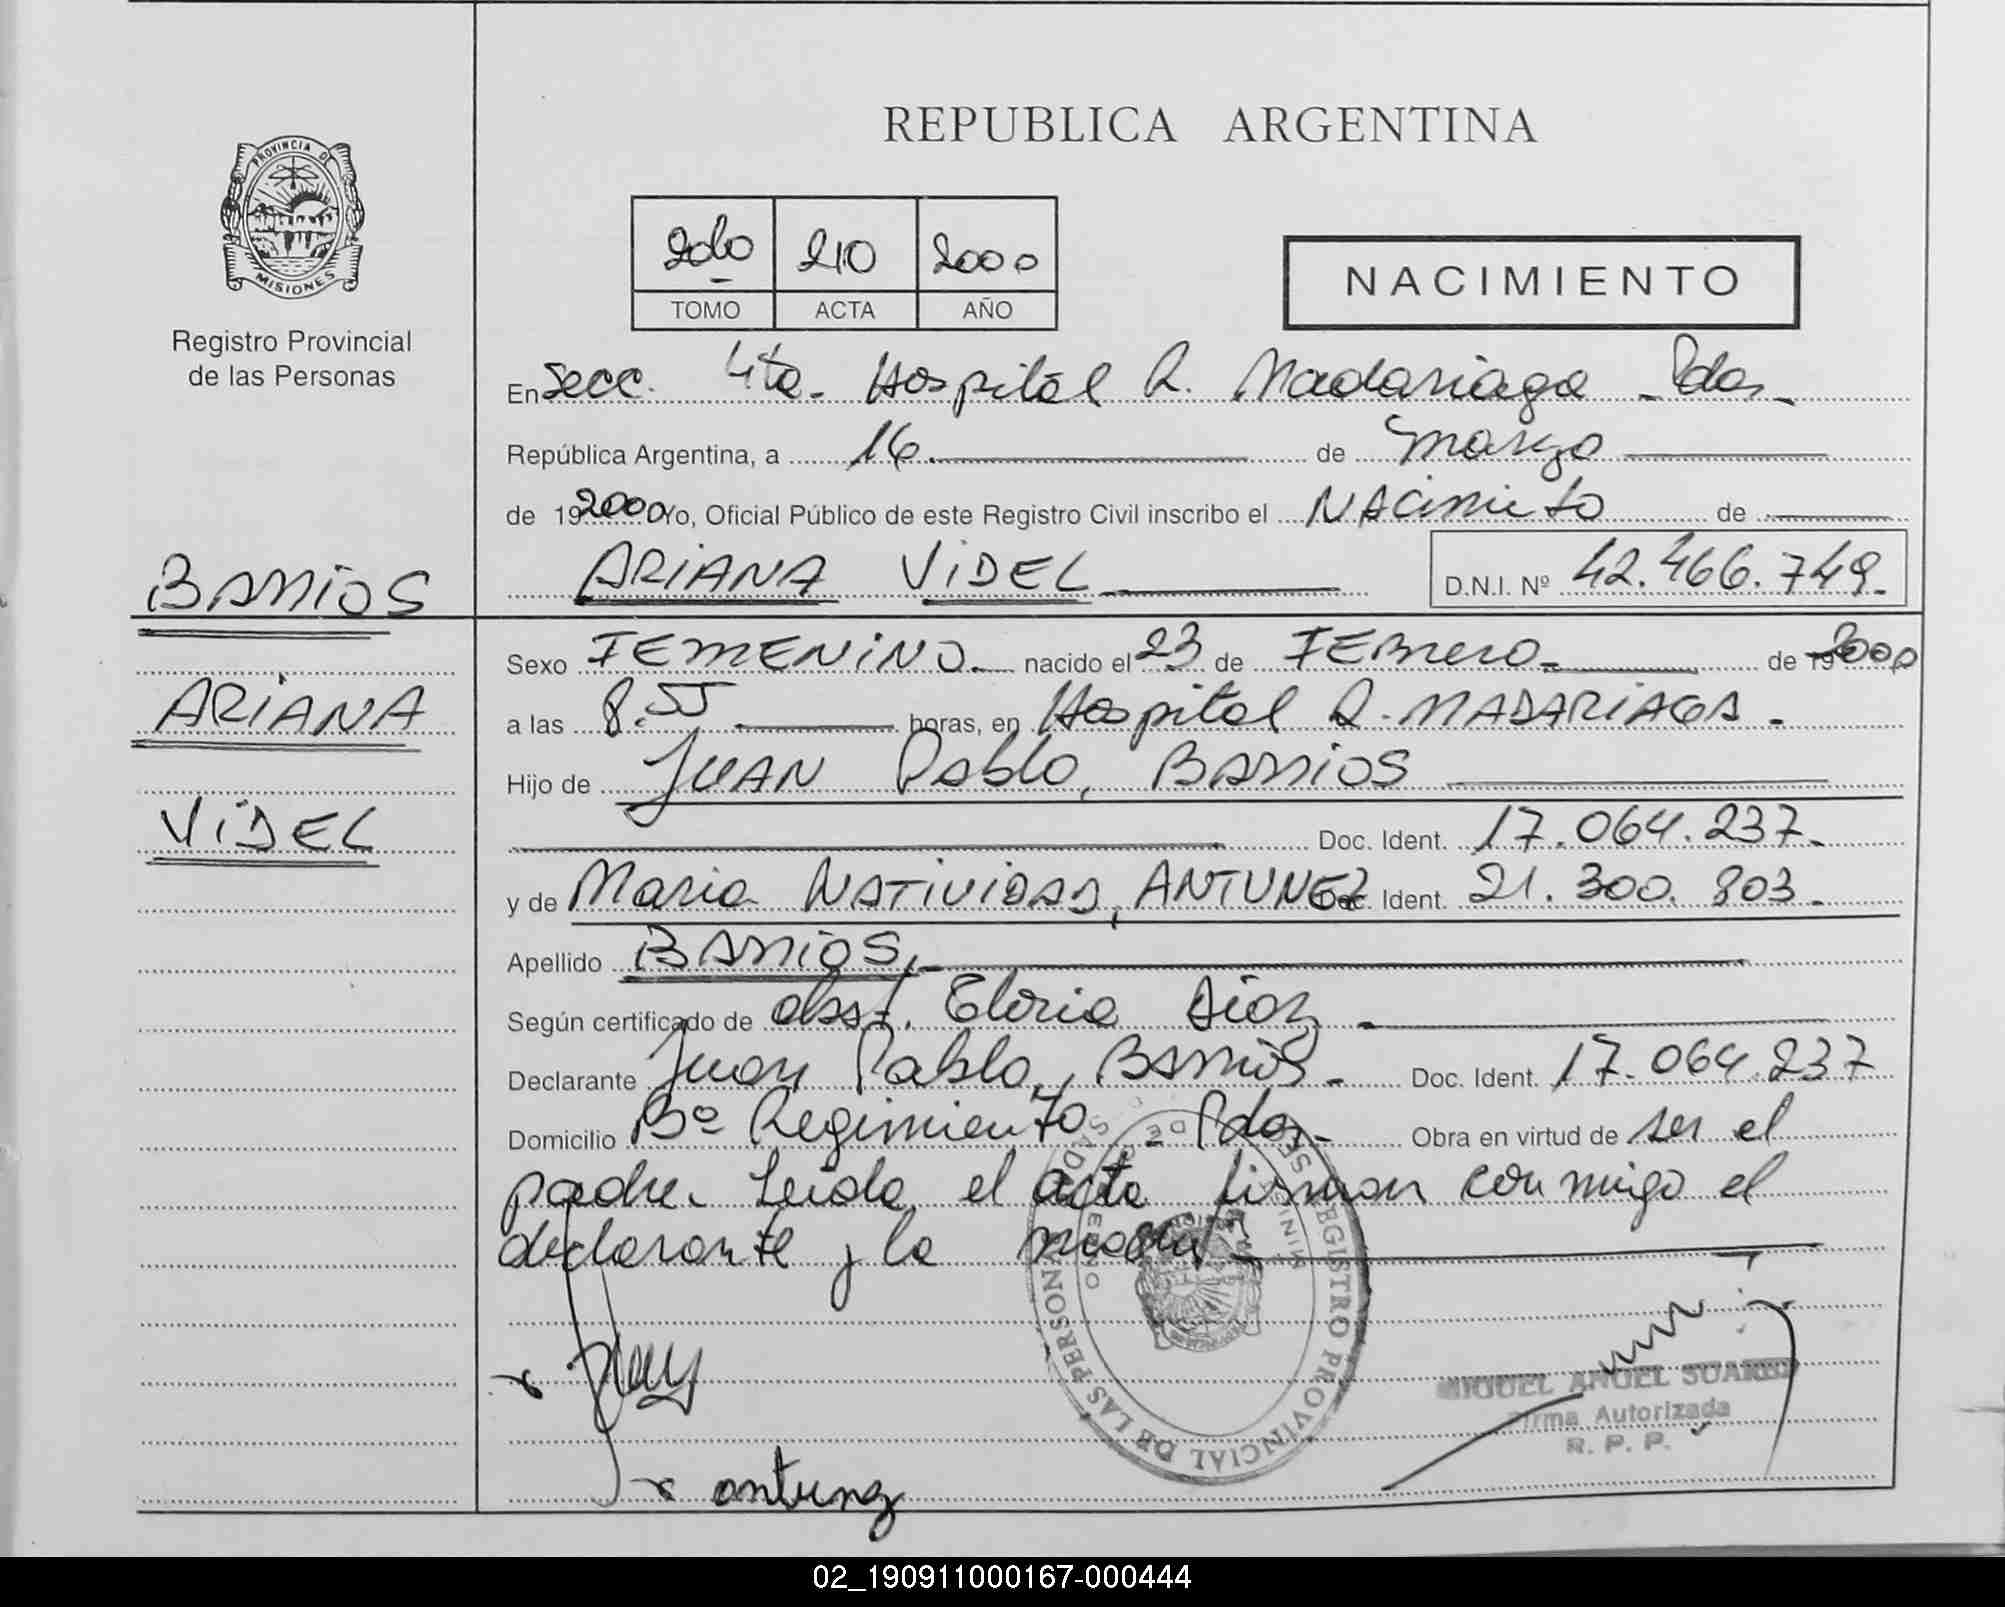 REPUBLICA ARGENTINA
PROVINCIA DE
MISIONES
Registro Provincial
de las Personas
210 2000
TOMO ACTA AÑO
NACIMIENTO
En Secc. 4ta. Hospital R. Madariaga - Pdas.-
República Argentina, a 16. de Marzo
de 192000 Yo, Oficial Público de este Registro Civil inscribo el NACimieto de
ARIANA ViDEL D.N.I. Nº 42.466.749.-
BARRiOS
ARIANA
ViDEL
Sexo FEMENiNO.- nacido el 23 de FEBrero.- de 192000
a las 8.55 horas, en Hospital R. MADARiAGA.
Hijo de JUAN Pablo, BARRiOS
Doc. Ident. 17.064.237.-
y de Maria NATiViDAD, ANTUNEZ Doc. Ident. 21.300.803.-
Apellido BARRiOS.-
Según certificado de obst. Gloria Diaz.-
Declarante Juan Pablo, BARRiOS.- Doc. Ident. 17.064.237
Domicilio Bº Regimiento - Pdas.- Obra en virtud de ser el
padre. Leida el acta firman con migo el
declarante y la madre.-
REGISTRO PROVINCIAL DE LAS PERSONAS
MIGUEL ANGEL SUAREZ
Firma Autorizada
R. P. P.
x antunez
02_190911000167-000444